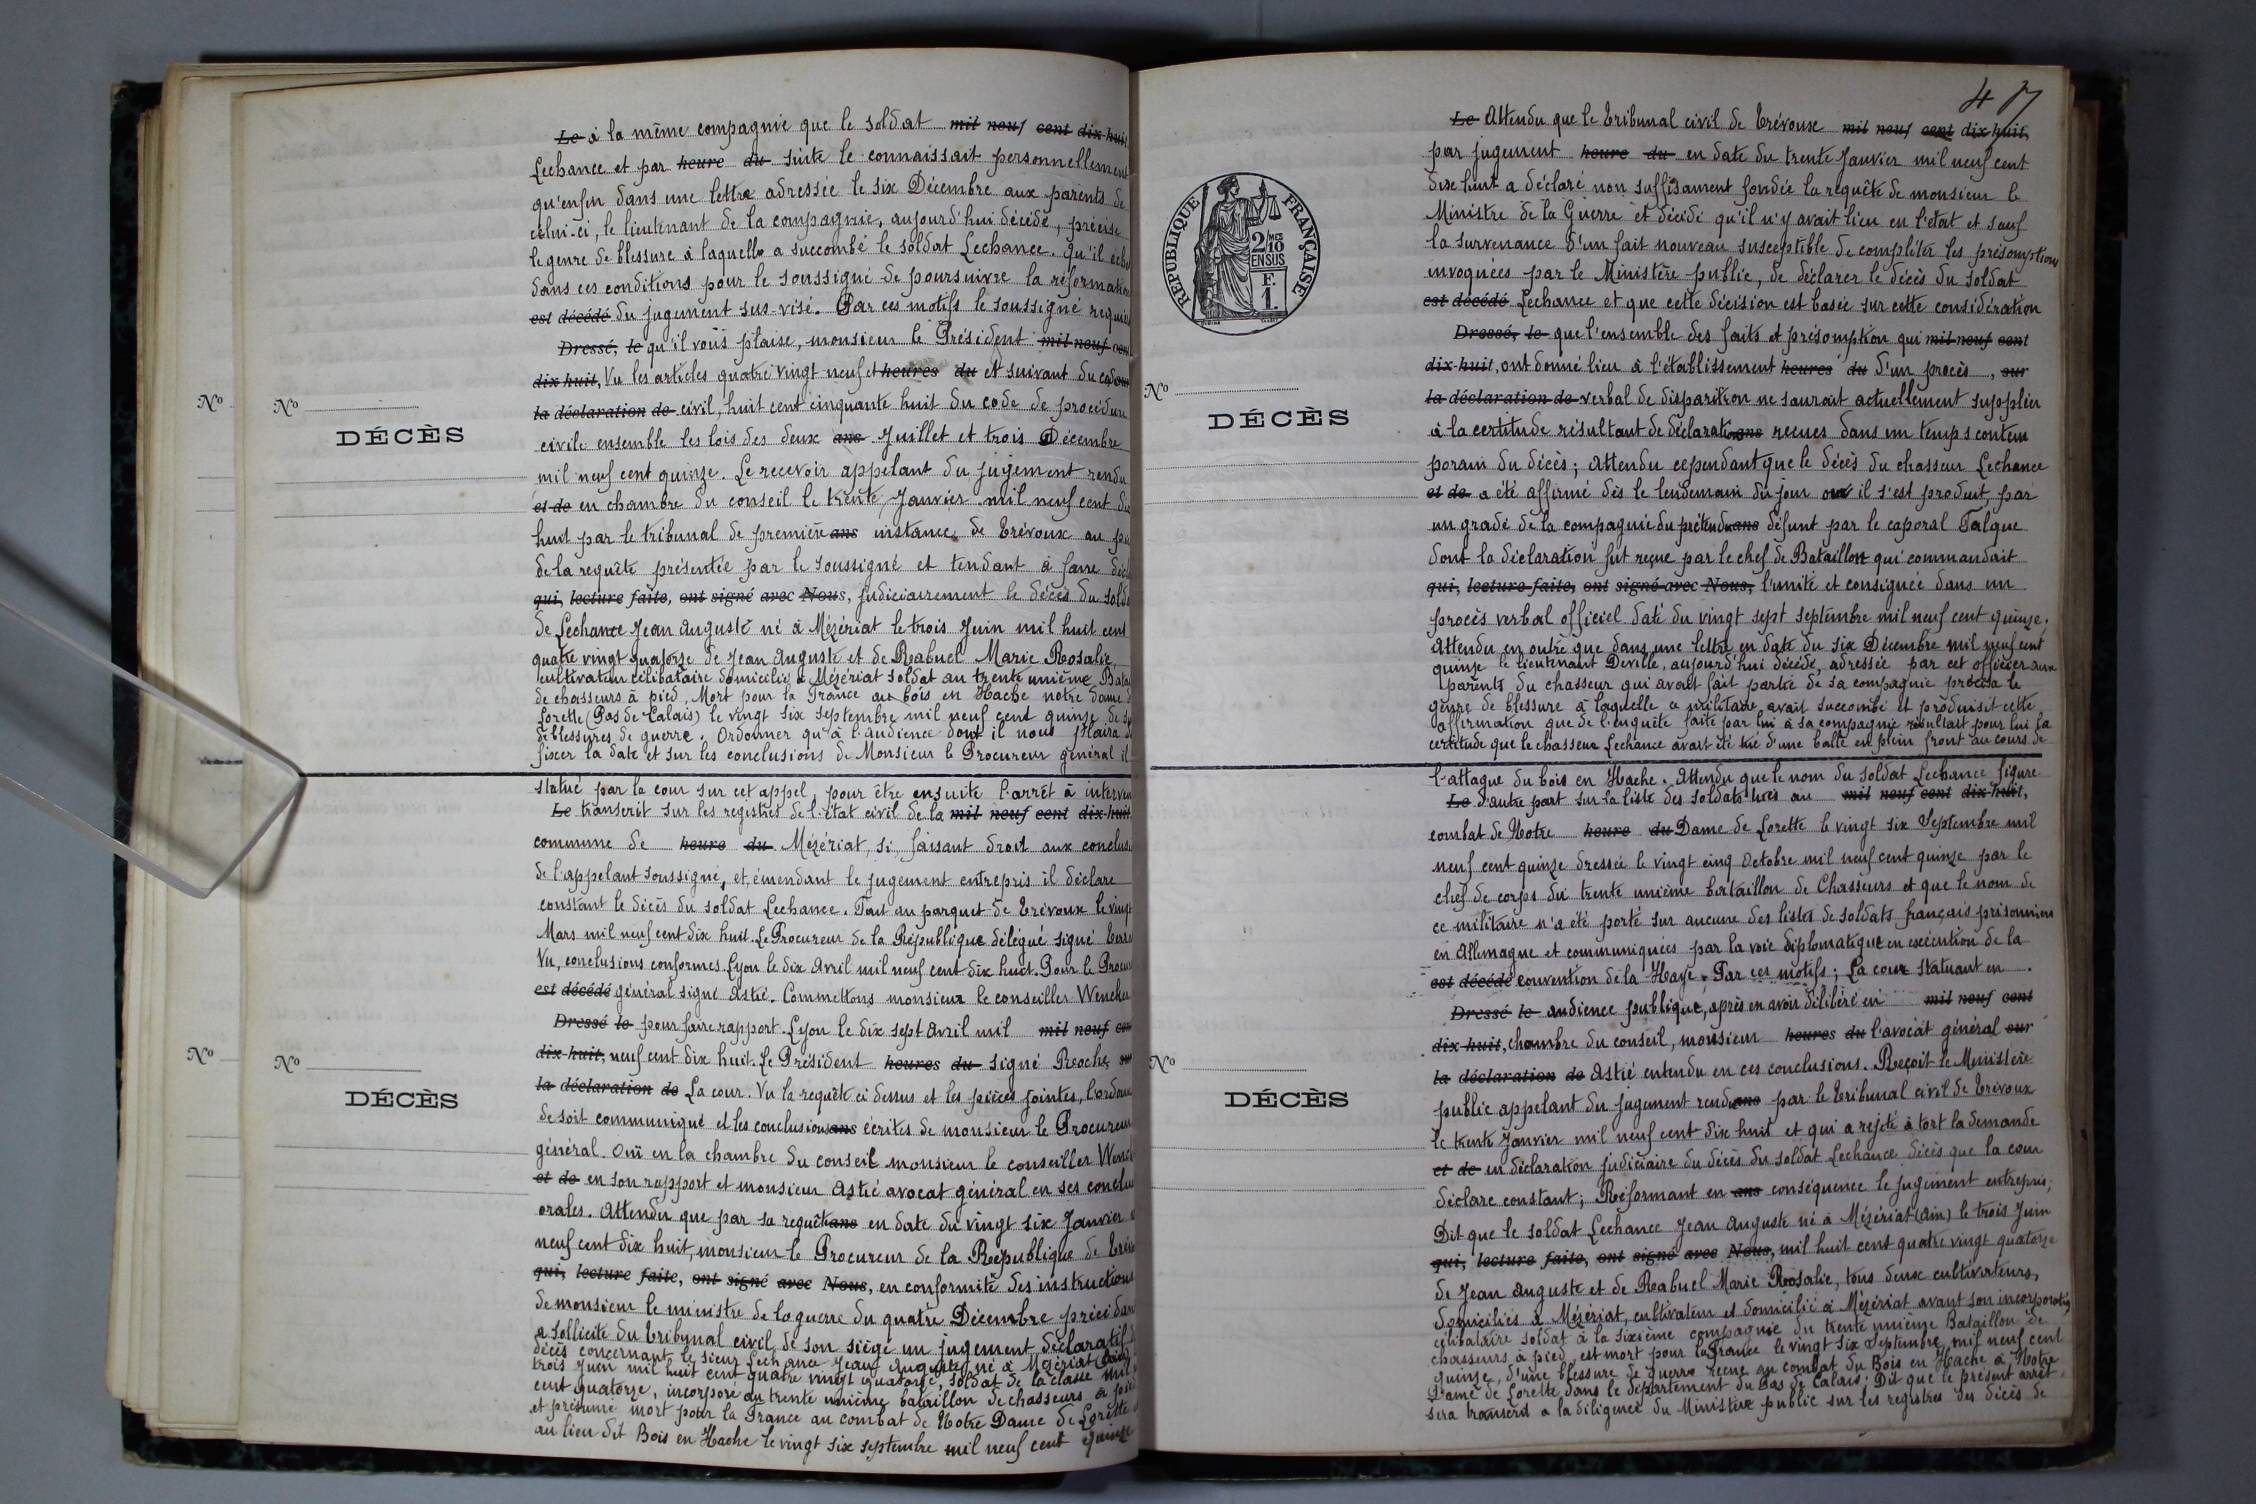 Le à la même compagnie que le soldat mil neuf cent dix huit
Lechance et par heure du suite le connaissait personnellement
qu'enfin dans une lettre adressée le six Décembre aux parents de
celui-ci, le lieutenant de la compagnie, aujourd'hui décédé, précise
le genre de blessure à laquelle a succombé le soldat Lechance. Qu'il
dans ces conditions pour le soussigné de poursuivre la réformation
est décédé du jugement sus-visé. Par ces motifs le soussigné requiert
Dressé, le qu'il vous plaise, monsieur le Président mil neuf cent
dix-huit, Vu les articles quatre vingt neuf et heures du et suivant du code sur
la déclaration de civil, huit cent cinquante huit du code de procédure
civile ensemble les lois des deux ans Juillet et trois Décembre
mil neuf cent quinze. Le recevoir appelant du jugement rendu
et de en chambre du conseil le trente Janvier mil neuf cent dix
huit par le tribunal de première ans instance, de Trévoux au
de la requête présentée par le soussigné et tendant à faire
qui, lecture faite, ont signé avec Nous, judiciairement le décès du
de Lechance Jean Auguste né à Mézériat le trois Juin mil huit cent
quatre vingt quatorze de Jean Auguste et de Rabuel Marie Rosalie,
cultivateur célibataire domicilié à Mézériat soldat au trente unième
de chasseurs à pied, Mort pour la France au bois en Hache notre Dame de
Lorette (Pas de Calais) le vingt six septembre mil neuf cent quinze de
de blessures de guerre. Ordonner qu'à l'audience dont il nous plaira de
fixer la date et sur les conclusions de Monsieur le Procureur général il
statué par la cour sur cet appel, pour être ensuite l'arrêt à intervenir
Le transcrit sur les registres de l'état civil de la mil neuf cent dix-huit
commune de heure du Mézériat, si, faisant droit aux
de l'appelant soussigné, et, émendant le jugement entrepris il déclare
constant le décès du soldat Lechance. Fait au parquet de Trévoux le vingt
Mars mil neuf cent dix huit. Le Procureur de la République délégué signé
Vu, conclusions conformes. Lyon le dix Avril mil neuf cent dix huit. Pour le
est décédé général signé Astié. Commettons monsieur le conseiller
Dressé le pour faire rapport. Lyon le dix sept Avril mil mil neuf cent
dix-huit, neuf cent dix huit. Le Président heures du signé Reoche, sur
la déclaration de La cour. Vu la requête ci dessus et les pièces jointes,
de soit communiqué et les conclusions ans écrites de monsieur le Procureur
général. Oui en la chambre du conseil monsieur le conseiller
et de en son rapport et monsieur Astié avocat général en ses
orales. Attendu que par sa requête ans en date du vingt six Janvier
neuf cent dix huit, monsieur le Procureur de la République de
qui, lecture faite, ont signé avec Nous, en conformité des instructions
de monsieur le ministre de la guerre du quatre Décembre
a sollicité du Tribunal civil de son siège un jugement déclaratif
décès concernant le sieur Lechance Jean Auguste né à Mézériat (Ain)
trois Juin mil huit cent quatre vingt quatorze, soldat de la classe mil
cent quatorze, incorporé au trente unième bataillon de chasseurs à pied
et présumé mort pour la France au combat de Notre Dame de Lorette
au lieu dit Bois en Hache le vingt six septembre mil neuf cent quinze
Nº
Nº
DÉCÈS
Nº
Nº
DÉCÈS
47
RÉPUBLIQUE FRANÇAISE
2 MES
10
EN SUS
F.
1
Le Attendu que le Tribunal civil de Trévoux mil neuf cent dix-huit,
par jugement heure du en date du trente Janvier mil neuf cent
dix huit a déclaré non suffisament fondée la requête de monsieur le
Ministre de la Guerre et décidé qu'il n'y avait lieu en l'état et sauf
la survenance d'un fait nouveau susceptible de compléter les présomptions
invoquées par le Ministère public, de déclarer le décès du soldat
est décédé Lechance et que cette décision est basée sur cette considération
Dressé, le que l'ensemble des faits et présomption qui mil neuf cent
dix-huit, ont donné lieu à l'établissement heures du d'un procès, sur
la déclaration de verbal de disparition ne saurait actuellement suppléer
à la certitude résultant de déclarations ans recues dans un temps contem
porain du décès; Attendu cependant que le décès du chasseur Lechance
et de a été affirmé dès le lendemain du jour où il s'est produit, par
un gradé de la compagnie du prétendu ans défunt par le caporal Talque
dont la déclaration fut reçue par le chef de Bataillon qui commandait
qui, lecture faite, ont signé avec Nous, l'unité et consignée dans un
procès verbal officiel daté du vingt sept septembre mil neuf cent quinze.
Attendu en outre que dans une lettre en date du six Décembre mil neuf cent
quinze le lieutenant Deville, aujourd'hui décédé, adressée par cet officier aux
parents du chasseur qui avait fait partie de sa compagnie précisa le
genre de blessure à laquelle ce militaire avait succombé et produisit cette
affirmation que de l'enquête faite par lui à sa compagnie résultait pour lui la
certitude que le chasseur Lechance avait été tué d'une balle en plein front au cours de
l'attaque du bois en Hache. Attendu que le nom du soldat Lechance figure
Le d'autre part sur la liste des soldats tués au mil neuf cent dix-huit,
combat de Notre heure du Dame de Lorette le vingt six Septembre mil
neuf cent quinze dressée le vingt cinq Octobre mil neuf cent quinze par le
chef de corps du trente unième bataillon de Chasseurs et que le nom de
ce militaire n'a été porté sur aucune des listes de soldats français prisonniers
en Allemagne et communiquées par la voie diplomatique en exécution de la
est décédé convention de la Haye. Par ces motifs; La cour statuant en
Dressé le audience publique, après en avoir délibéré en mil neuf cent
dix-huit, chambre du conseil, monsieur heures du l'avocat général sur
la déclaration de Astié entendu en ces conclusions. Reçoit le Ministère
public appelant du jugement rendu ans par le Tribunal civil de Trévoux
le trente Janvier mil neuf cent dix huit et qui a rejeté à tort la demande
et de en déclaration judiciaire du décès du soldat Lechance décès que la cour
déclare constant; Réformant en ans conséquence le jugement entrepris;
Dit que le soldat Lechance Jean Auguste né à Mézériat (Ain) le trois Juin
qui, lecture faite, ont signé avec Nous, mil huit cent quatre vingt quatorze
de Jean Auguste et de Rabuel Marie Rosalie, tous deux cultivateurs,
domiciliés à Mézériat, cultivateur et domicilié à Mézériat avant son incorporation
célibataire soldat à la sixième compagnie du trente unième Bataillon de
chasseurs à pied, est mort pour la France le vingt six Septembre mil neuf cent
quinze, d'une blessure de guerre recue au combat du Bois en Hache à Notre
Dame de Lorette dans le département du Pas de Calais; Dit que le présent arrêt
sera transcrit a la diligence du Ministère public sur les registres des décès de
Nº
DÉCÈS
Nº
DÉCÈS